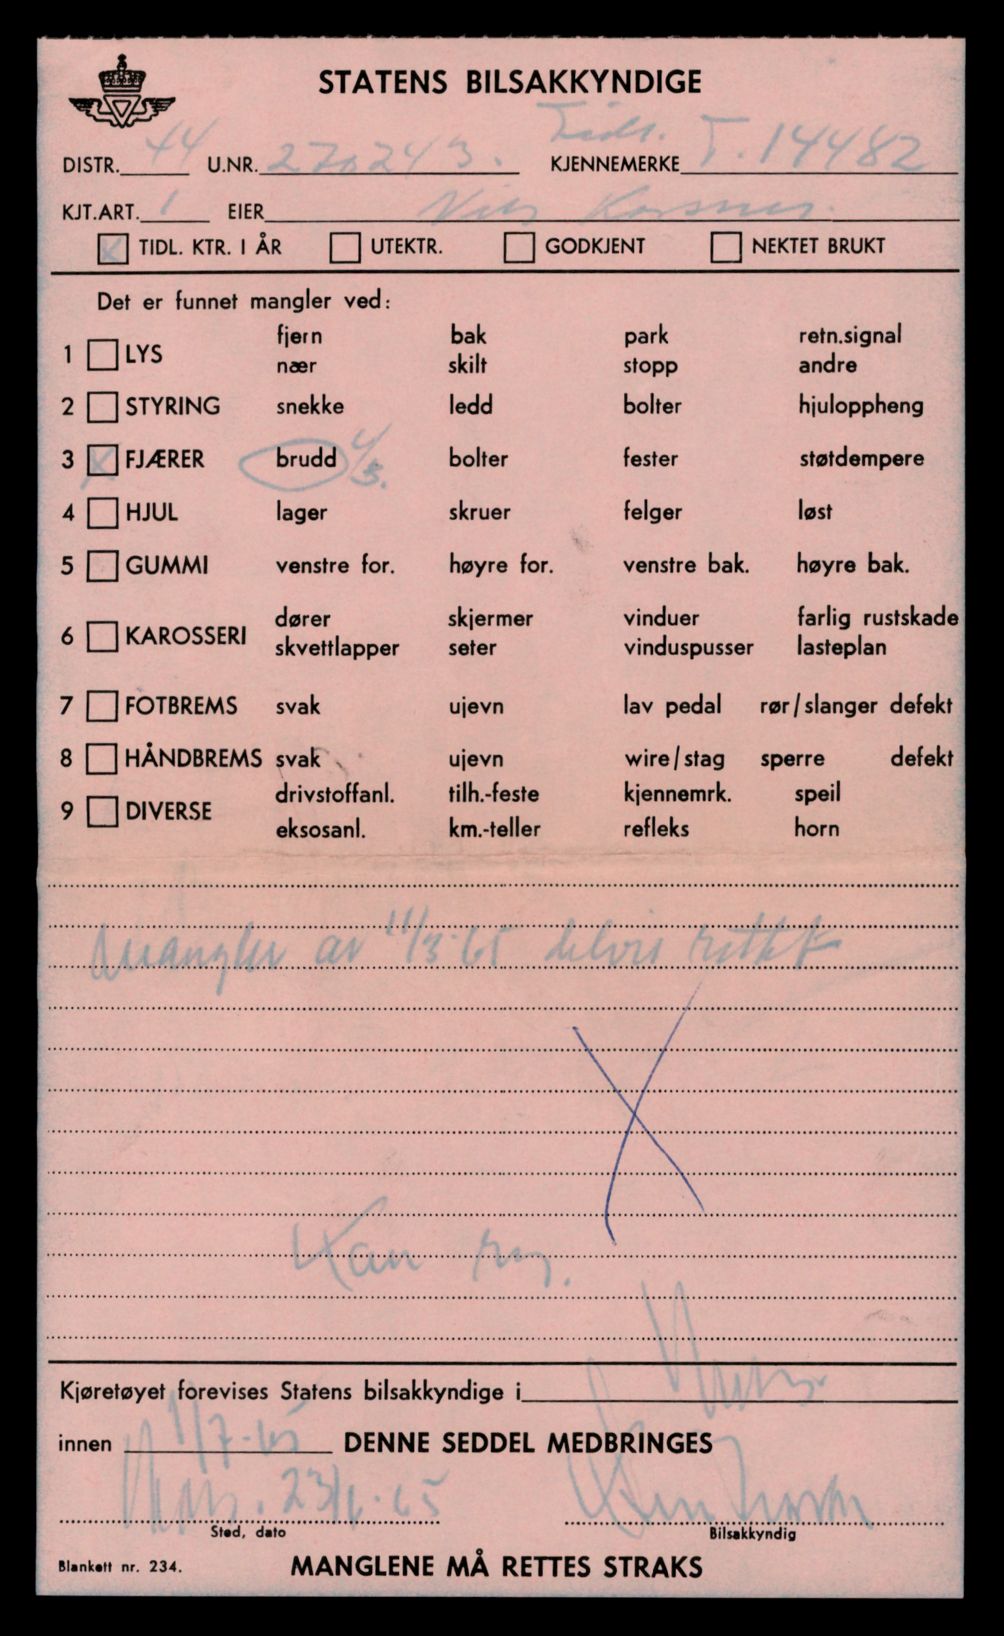 STATENS BILSAKKYNDIGE
Tidl.
DISTR. 44 U.NR. 270243. KJENNEMERKE T. 14482
KJT.ART. 1 EIER Nils Korsnes.
X TIDL. KTR. I ÅR UTEKTR. GODKJENT NEKTET BRUKT
Det er funnet mangler ved:
1 LYS fjern bak park retn.signal
nær skilt stopp andre
2 STYRING snekke ledd bolter hjuloppheng
3 X FJÆRER brudd bolter fester støtdempere
4 HJUL lager skruer felger løst
5 GUMMI venstre for. høyre for. venstre bak. høyre bak.
6 KAROSSERI dører skjermer vinduer farlig rustskade
skvettlapper seter vinduspusser lasteplan
7 FOTBREMS svak ujevn lav pedal rør/slanger defekt
8 HÅNDBREMS svak ujevn wire/stag sperre defekt
9 DIVERSE drivstoffanl. tilh.-feste kjennemrk. speil
eksosanl. km.-teller refleks horn
Mangler av 11/3-65 delvis rettet
X
Kan reg.
Kjøretøyet forevises Statens bilsakkyndige i
innen 1/7-65 DENNE SEDDEL MEDBRINGES
23/6-65
Sted, dato Bilsakkyndig
Blankett nr. 234. MANGLENE MÅ RETTES STRAKS